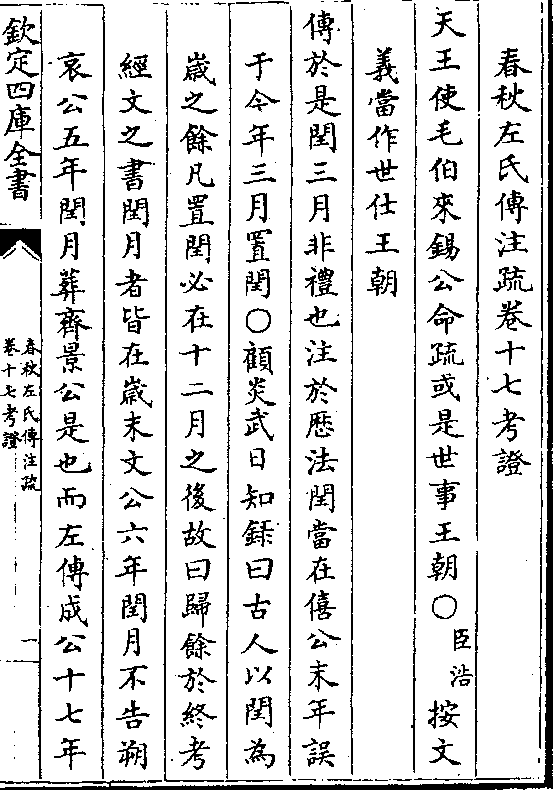 春秋左氏傳注疏卷十七考證
天王使毛伯來錫公命疏或是世事王朝○臣浩按文
義當作世仕王朝
傳於是閏三月非禮也注於厯法閏當在僖公末年誤
于今年三月置閏○顧炎武日知錄曰古人以閏為
嵗之餘凡置閏必在十二月之後故曰歸餘於終考
經文之書閏月者皆在嵗末文公六年閏月不告朔
哀公五年閏月葬齊景公是也而左傳成公十七年
欽定四庫全書
春秋左氏傳注疏
卷十七考證
一